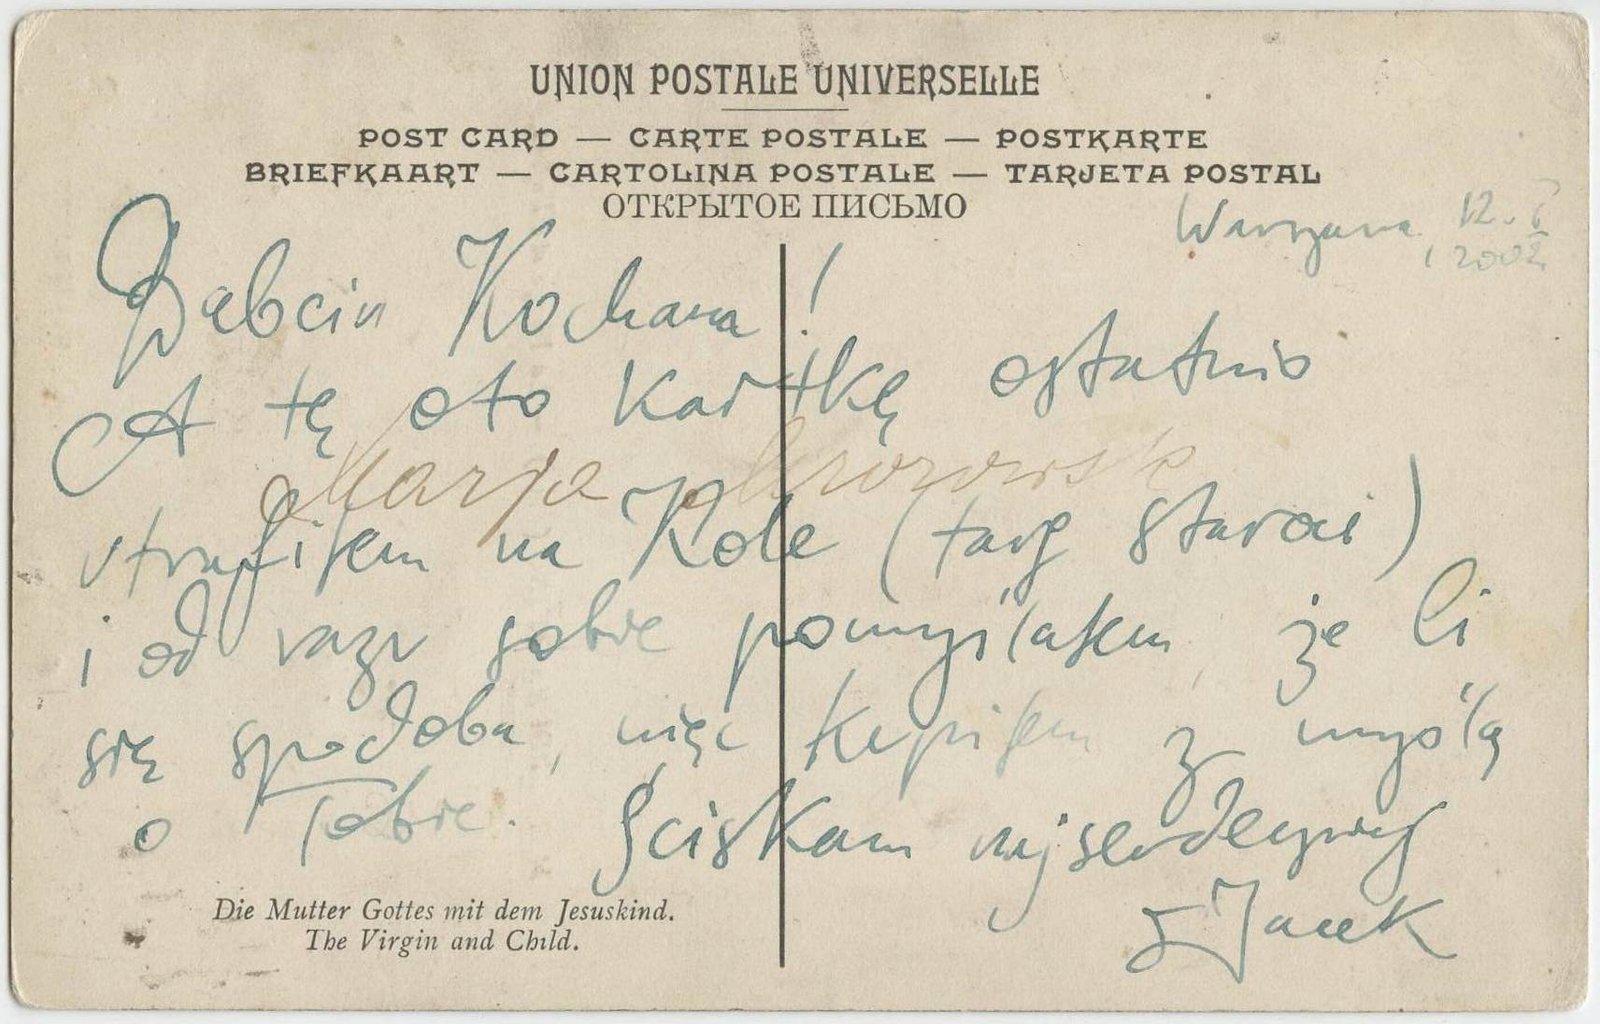 UNION POSTALE UNIVERSELLE
POST CARD — CARTE POSTALE — POSTKARTE
BRIEFKAART — CARTOLINA POSTALE — TARJETA POSTAL
ОТКРЫТОЕ ПИСЬМО
Warszawa, 12.
2002
Babciu Kochana!
A tę oto kartkę ostatnio
Marja
utrafiłem na Kole (targ staroci)
i od razu sobie pomyślałem, że Ci
się spodoba, więc kupiłem z myślą
o Tobie. Ściskam najserdeczniej
Jacek
Die Mutter Gottes mit dem Jesuskind.
The Virgin and Child.